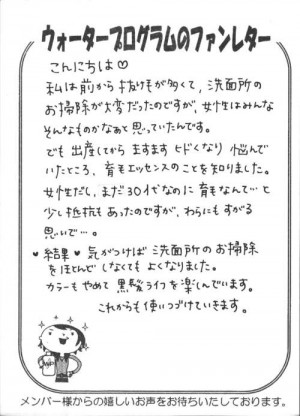 ウォータープログラムのファンレター
こんにちは♡
私は前から抜け毛が多くて、洗面所の
お掃除が大変だったのですが、女性はみんな
そんなものかなぁと思っていたんです。
でも出産してからますますヒドくなり悩んで
いたところ、育毛エッセンスのことを知りました。
女性だし、まだ30代なのに育毛なんて…と
少し抵抗もあったのですが、わらにもすがる
思いで…。
♥結果♥ 気がつけば洗面所のお掃除
をほとんどしなくてもよくなりました。
カラーもやめて黒髪ライフを楽しんでいます。
これからも使いつづけていきます。
WP
メンバー様からの嬉しいお声をお待ちいたしております。